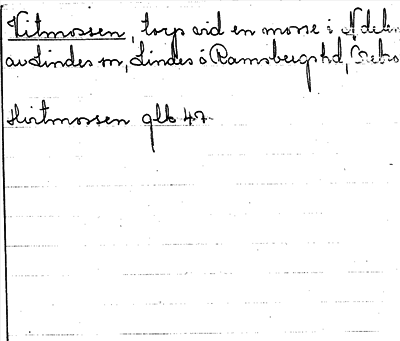 Vitmossen, torp vid en mosse i N delen
av Lindes sn, Lindes o Ramsbergs hd, Örebro
Hvitmossen glb 47.